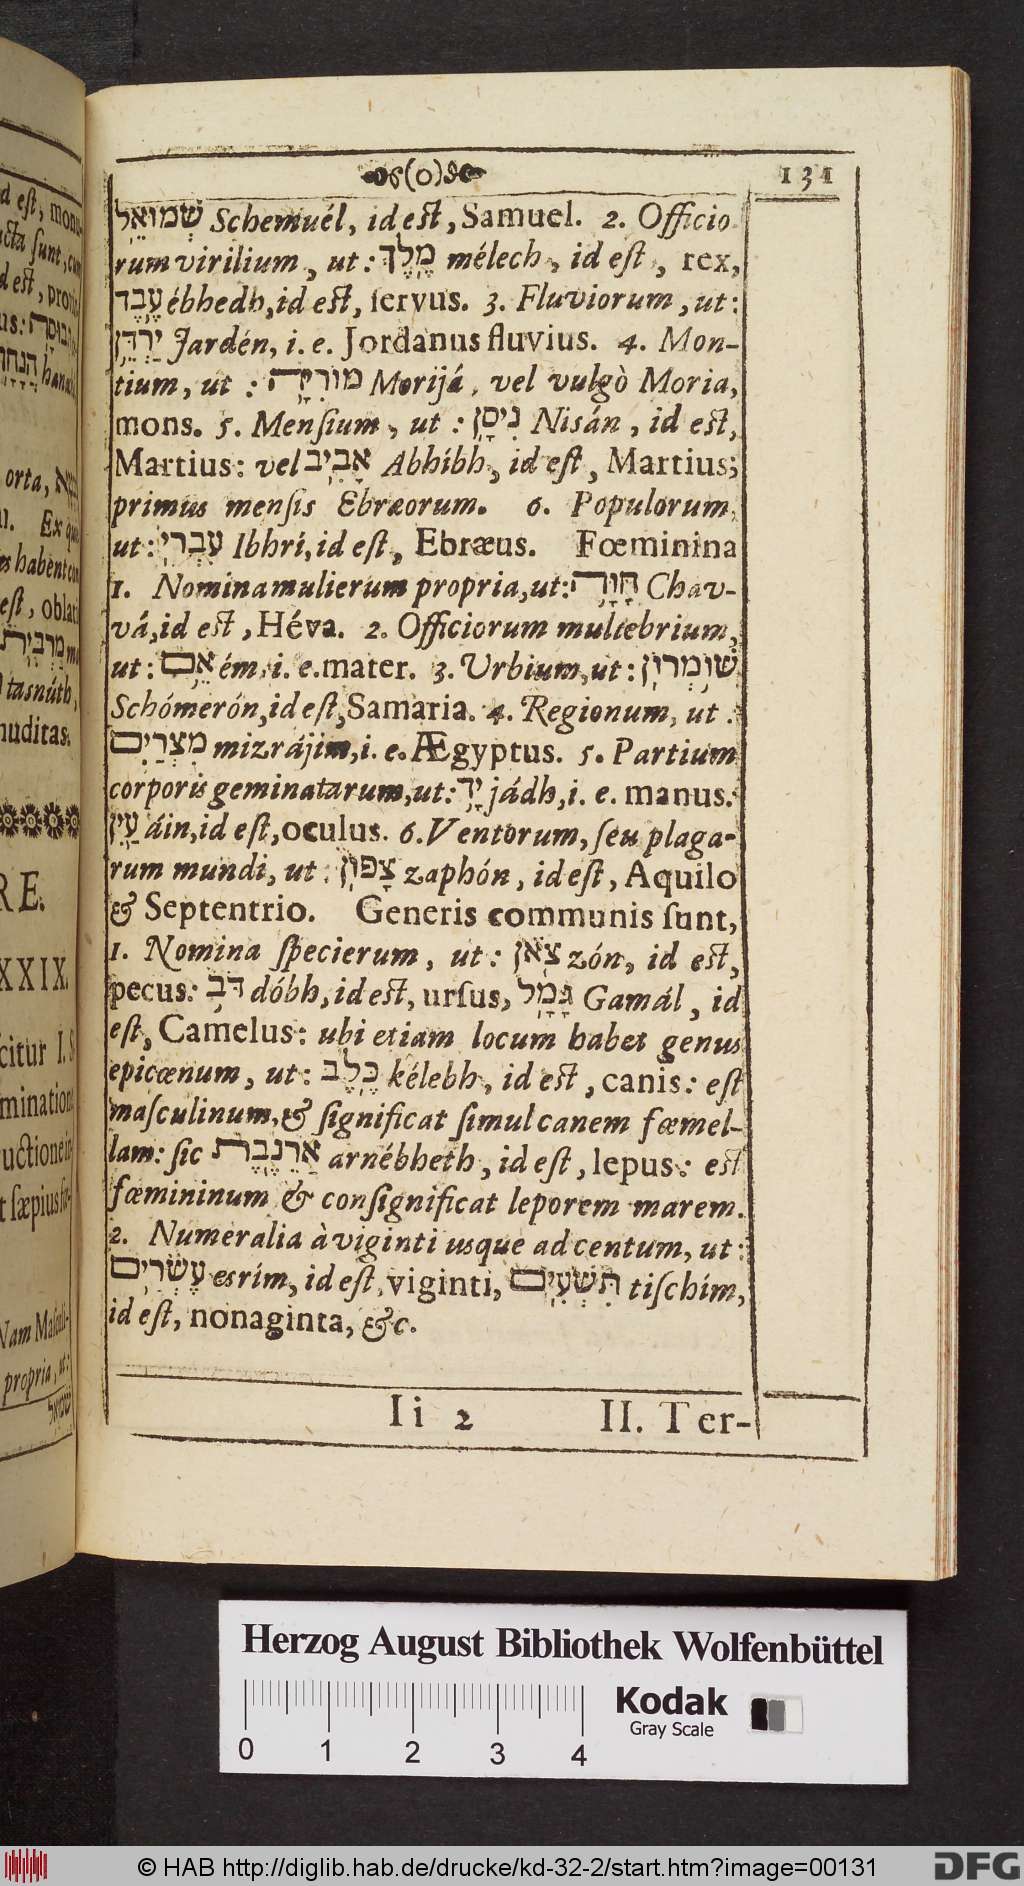 (o) 131
שְׁמוּאֵל Schemuél, id eſt, Samuel. 2. Officio-
rum virilium, ut: מֶלֶךְ mélech, id eſt, rex,
עֶבֶד ébhedh, id eſt, ſervus. 3. Fluviorum, ut:
יַרְדֵּן Jardén, i. e. Jordanus fluvius. 4. Mon-
tium, ut: מוֹרִיָּה Morijá, vel vulgò Moria,
mons. 5. Menſium, ut: נִיסָן Niſán, id eſt,
Martius: vel אָבִיב Abhibh, id eſt, Martius;
primus menſis Ebræorum. 6. Populorum,
ut: עִבְרִי Ibhri, id eſt, Ebræus. Fœminina
1. Nomina mulierum propria, ut: חַוָּה Chav-
vá, id eſt, Héva. 2. Officiorum muliebrium,
ut: אֵם ém, i. e. mater. 3. Urbium, ut: שׁוֹמְרוֹן
Schómerón, id eſt, Samaria. 4. Regionum, ut:
מִצְרַיִם mizrájim, i. e. Ægyptus. 5. Partium
corporis geminatarum, ut: יָד jádh, i. e. manus.
עַיִן áin, id eſt, oculus. 6. Ventorum, ſeu plaga-
rum mundi, ut: צָפוֹן zaphón, id eſt, Aquilo
& Septentrio. Generis communis ſunt,
1. Nomina ſpecierum, ut: צֹאן zón, id eſt,
pecus: דֹּב dóbh, id eſt, urſus, גָּמָל Gamál, id
eſt, Camelus: ubi etiam locum habet genus
epicœnum, ut: כֶּלֶב kélebh, id eſt, canis: eſt
maſculinum, & ſignificat ſimul canem fœmel-
lam: ſic אַרְנֶבֶת arnébheth, id eſt, lepus: eſt
fœmininum & conſignificat leporem marem.
2. Numeralia à viginti usque ad centum, ut:
עֶשְׂרִים esrím, id eſt, viginti, תִּשְׁעִים tiſchím,
id eſt, nonaginta, &c.
Ii 2 II. Ter-
Herzog August Bibliothek Wolfenbüttel
0 1 2 3 4
Kodak
Gray Scale
© HAB http://diglib.hab.de/drucke/kd-32-2/start.htm?image=00131
DFG